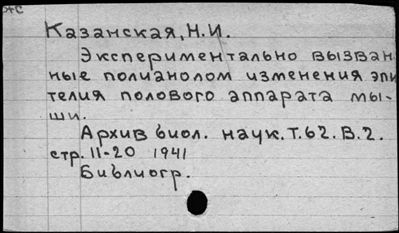 Казанская, Н.И.
Экспериментально вызван
ные полианолом изменения эпи
телия полового аппарата мы-
ши.
Архив биол. наук. Т. 62. В. 2.
стр. 11-20 1941
Библиогр.